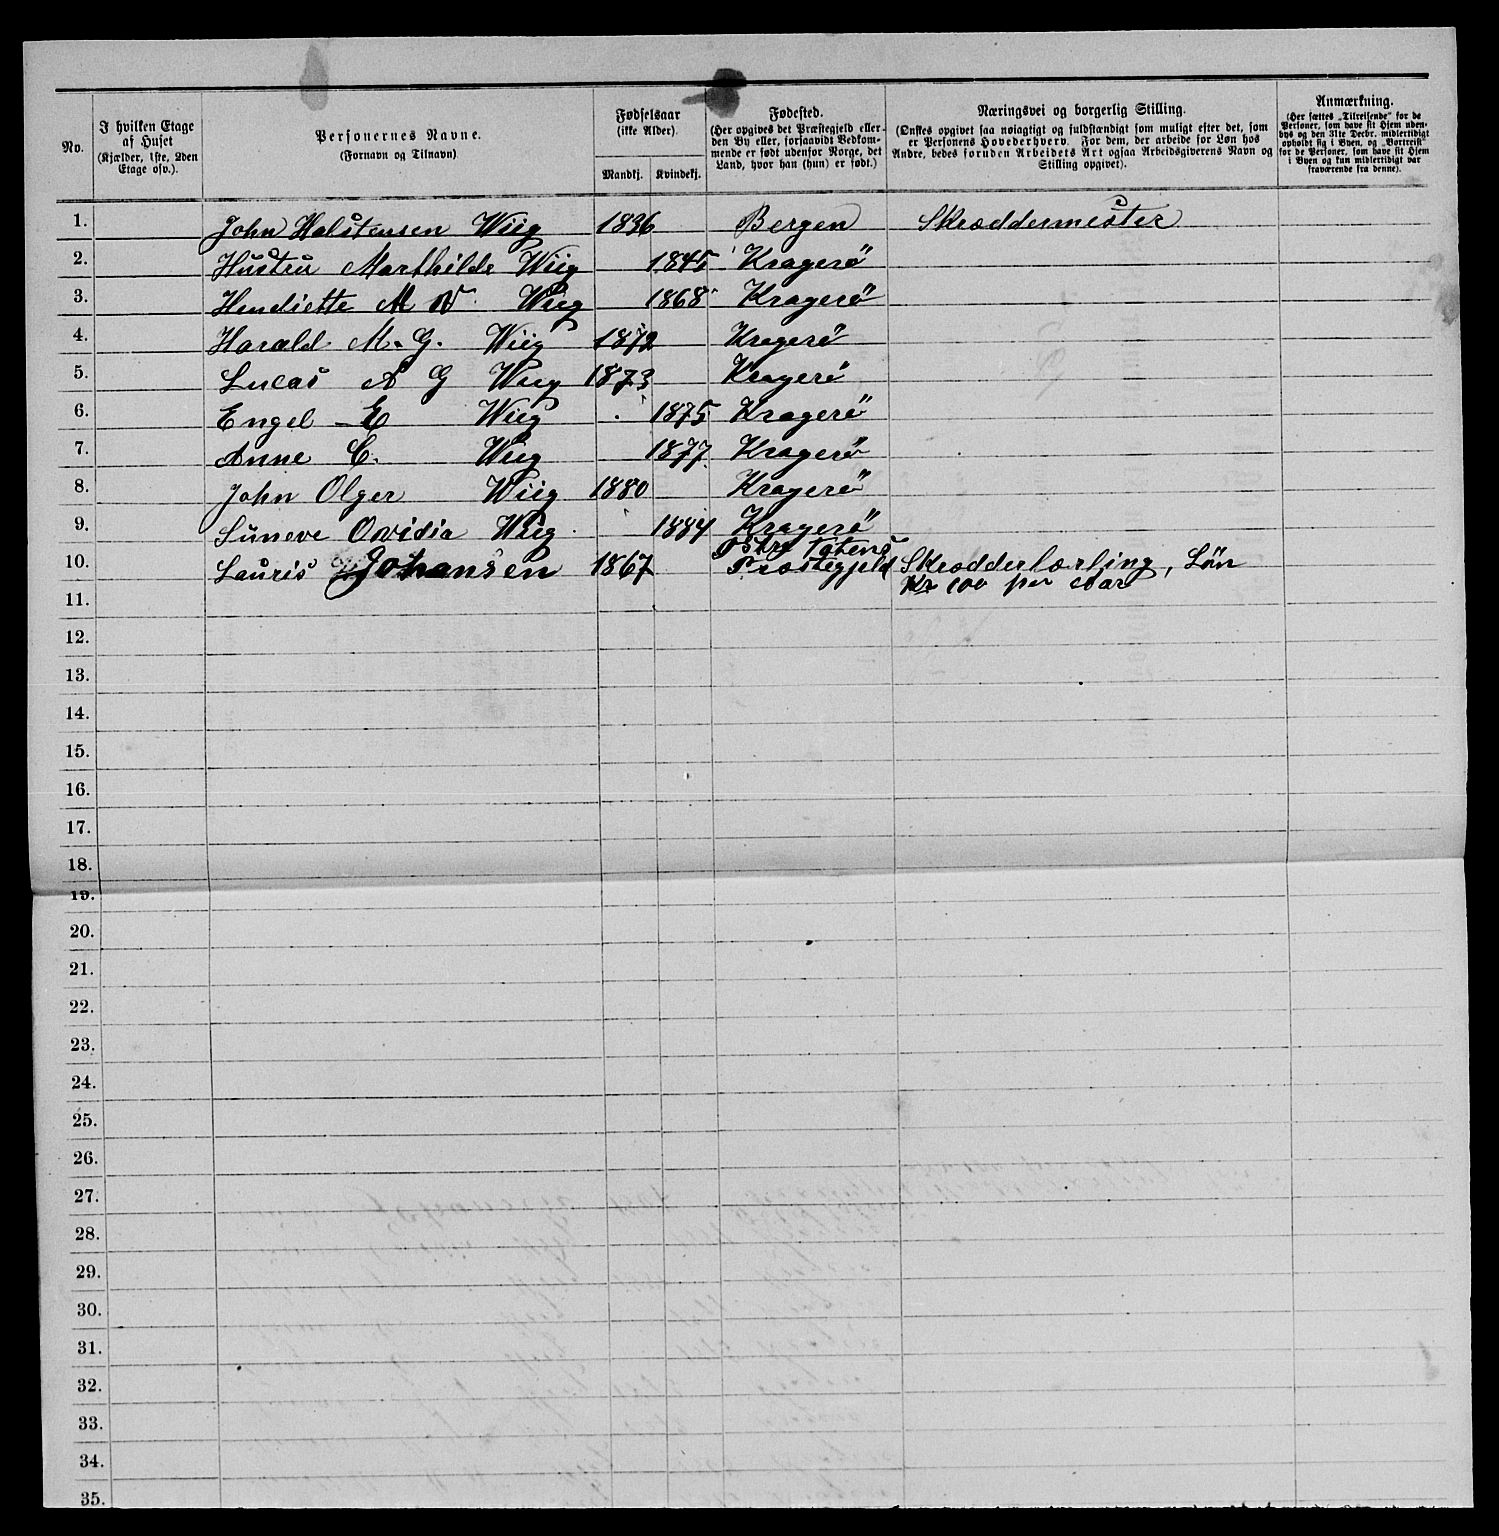 No.
I hvilken Etage af Huset (Kjælder, 1ste, 2den Etage osv.).
Personernes Navne. (Fornavn og Tilnavn)
Fødselsaar (ikke Alder)
Mandkj. Kvindekj.
Fødested. (Her opgives det Præstegjeld eller den By eller, forsaavidt Vedkommende er født udenfor Norge, det Land, hvor han (hun) er født.)
Næringsvei og borgerlig Stilling. (Ønskes opgivet saa nøiagtigt og fuldstændigt som muligt efter det, som er Personens Hovederhverv. For dem, der arbeide for Løn hos Andre, bedes foruden Arbeidets Art ogsaa Arbeidsgiverens Navn og Stilling opgivet).
Anmærkning. (Her sættes „Tilreisende“ for de Personer, som have sit Hjem udenbys og den 31te Decbr. midlertidigt opholdt sig i Byen, og „Bortreist“ for de Personer, som have sit Hjem i Byen og kun midlertidigt var fraværende fra denne).
1. John Halstensen Wiig 1836 Bergen Skræddermester
2. Hustru Marthilde Wiig 1845 Kragerö
3. Hendiette M N Wiig 1868 Kragerö
4. Harald M. G. Wiig 1872 Kragerö
5. Lucas A G Wiig 1873 Kragerö
6. Engel E Wiig 1875 Kragerö
7. Anne C. Wiig 1877 Kragerö
8. John Olger Wiig 1880 Kragerö
9. Suneve Ovidia Wiig 1884 Kragerö
10. Lauris Johansen 1867 Østre Totens Præstegjeld Skrædderlærling, Lön
Kr 100 per Aar
11.
12.
13.
14.
15.
16.
17.
18.
19.
20.
21.
22.
23.
24.
25.
26.
27.
28.
29.
30.
31.
32.
33.
34.
35.